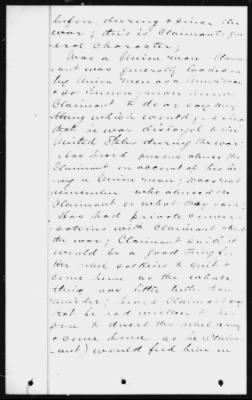 before during & since the
war; this is Claimants gen-
eral Character;
Was a Union man Claim-
ant was generally looked on
by Union men as a Union man
& so known never knew
Claimant to do or say any
thing which would go
that he was disloyal to the
United States during the war
Has heard persons abuse the
Claimant on account of his be-
ing a Union man; does not
remember who abused the
Claimant or what they said.
Has had private conver-
sations with Claimant about
the war; Claimant said it
would be a good thing for
the to quit &
come home as the whole
thing was little better than
murder; heard Claimant say
that he had written to his
son to desert the rebel army
& come home as he (Claim-
ant) would feed him in